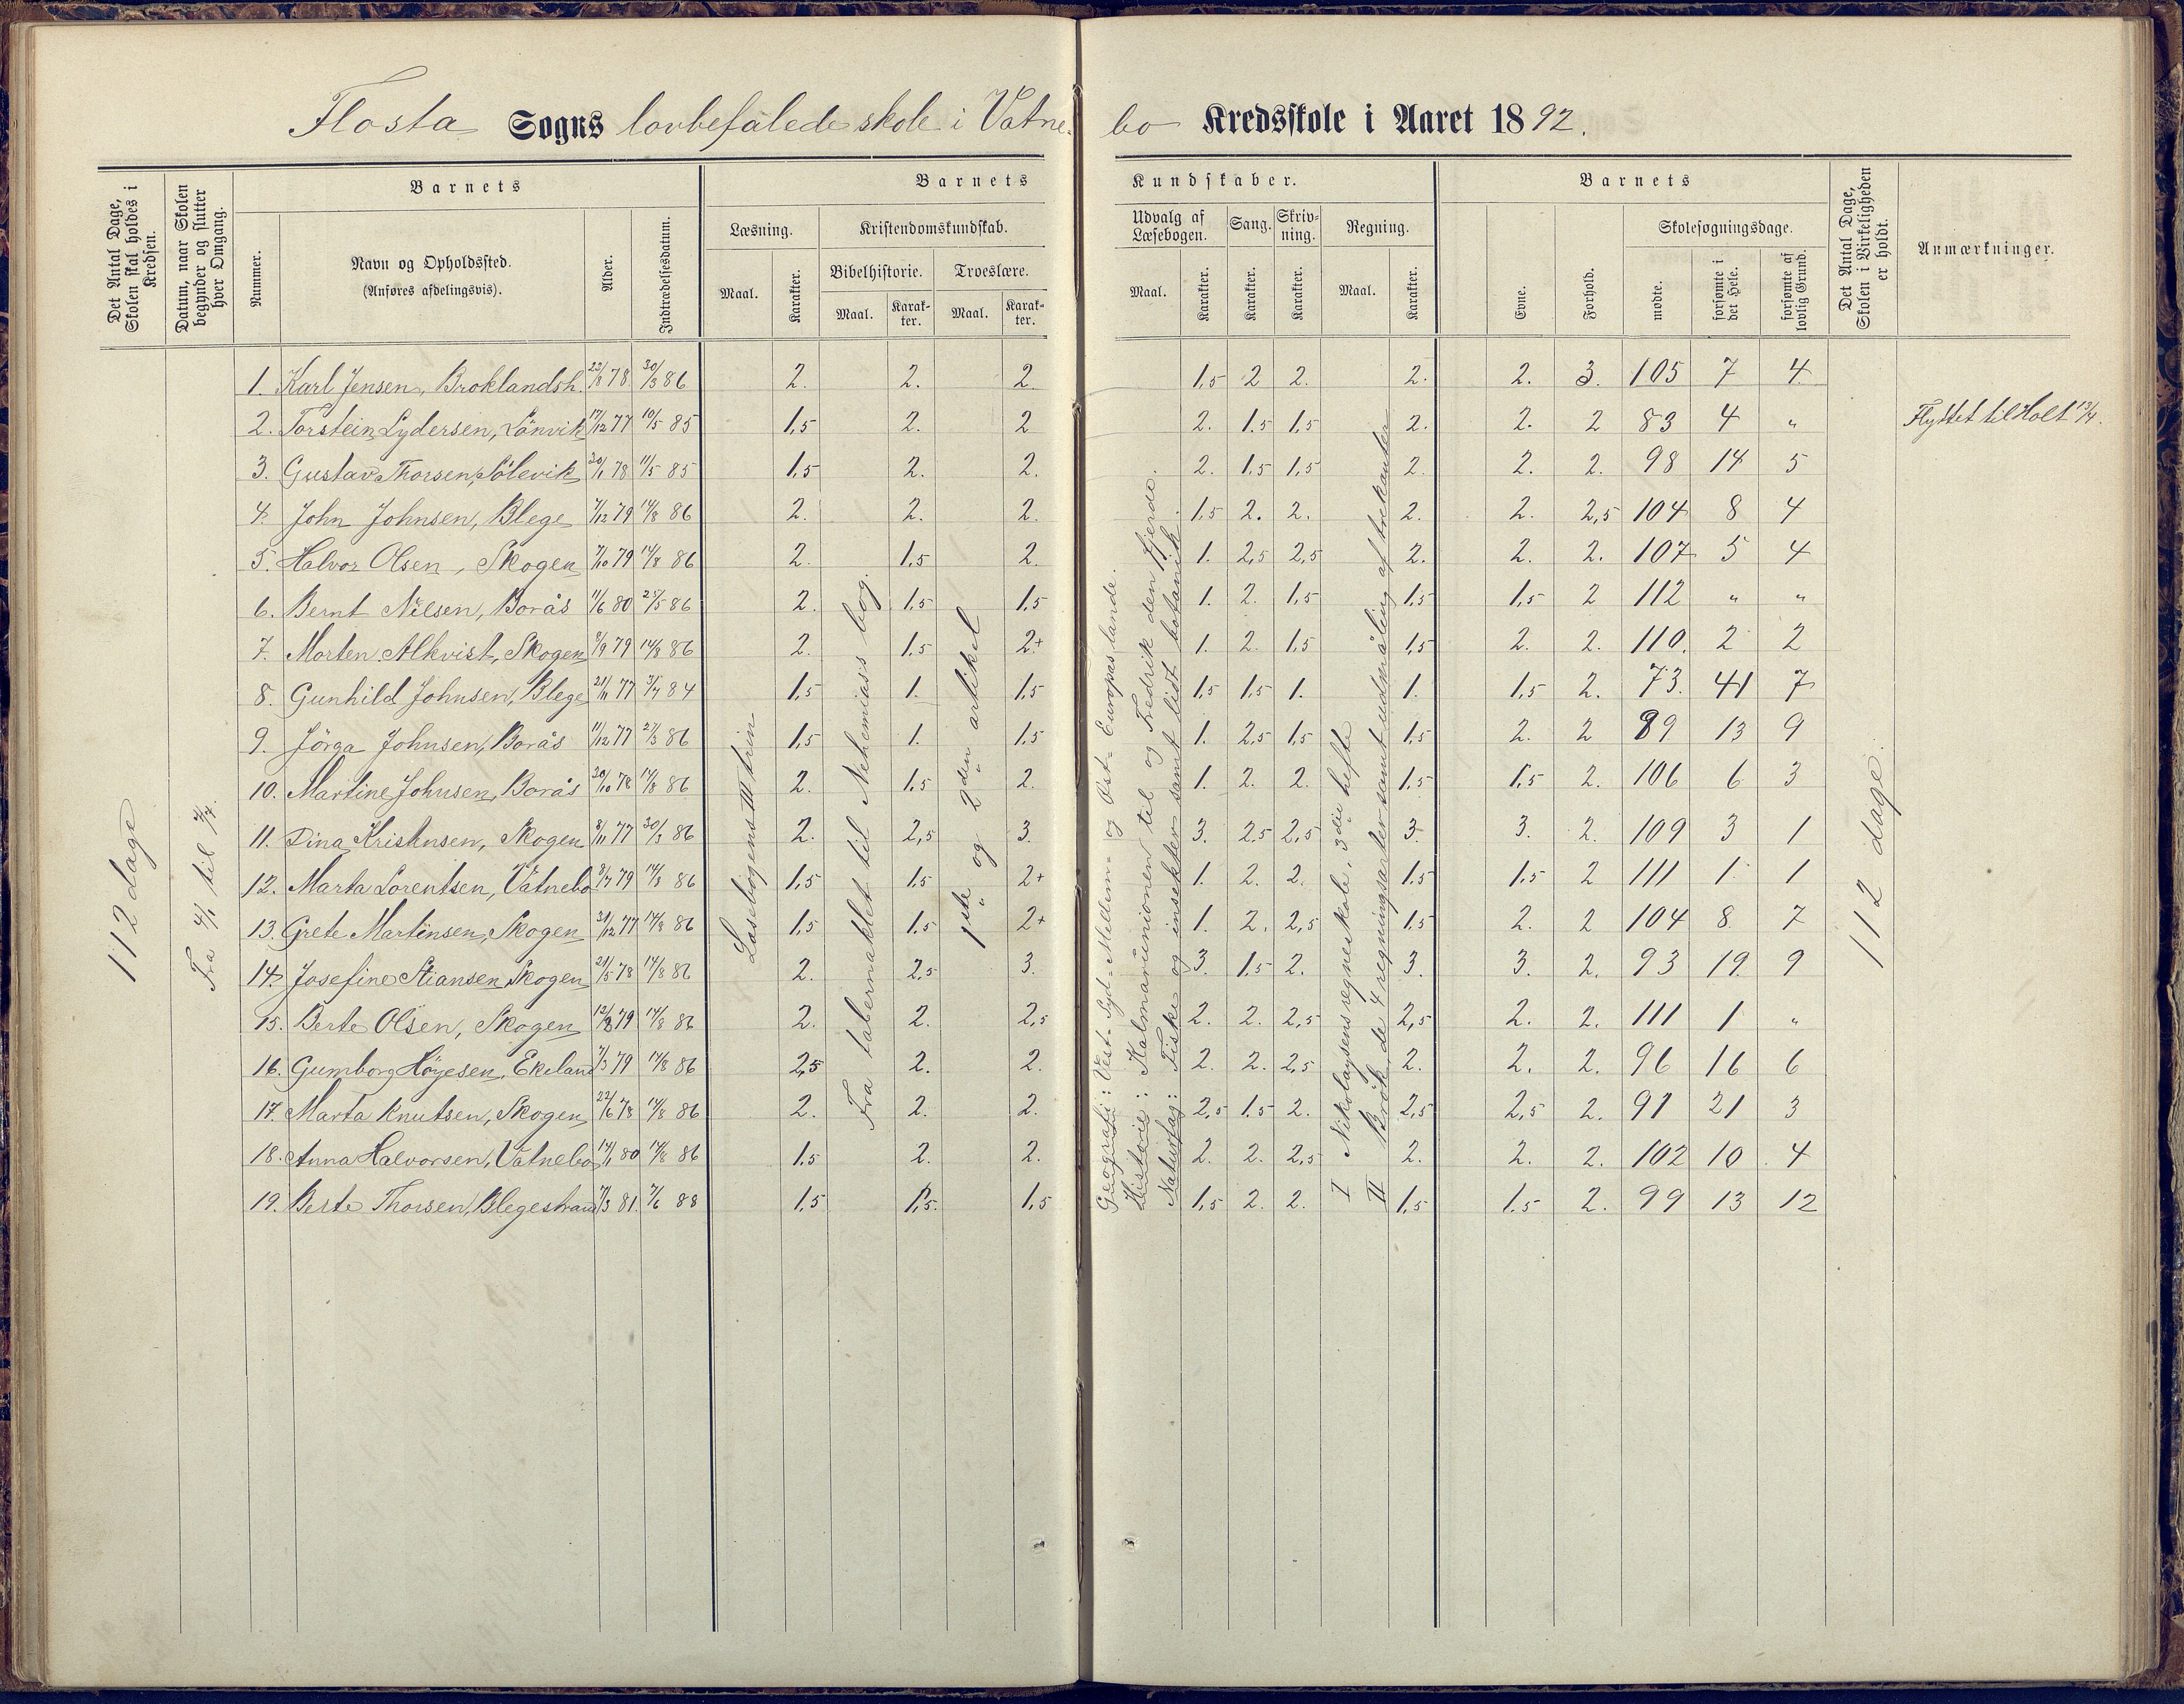 Flosta Sogns lovbefalede skole i Vatnebo Kredsskole i Aaret 1892.
Det Antal Dage, Skolen skal holdes i Kredsen.
Datum, naar Skolen begynder og slutter hver Omgang.
Barnets
Nummer.
Navn og Opholdssted.
(Anføres afdelingsvis).
Alder.
Indtrædelsesdatum.
Barnets Kundskaber.
Læsning.
Maal. Karakter.
Kristendomskundskab.
Bibelhistorie. Troeslære.
Maal. Karakter. Maal. Karakter.
Udvalg af Læsebogen.
Maal. Karakter.
Sang.
Karakter.
Skrivning.
Karakter.
Regning.
Maal. Karakter.
Barnets
Evne.
Forhold.
Skolesøgningsdage.
mødte.
forsømte i det Hele.
forsømte af lovlig Grund.
Det Antal Dage, Skolen i Virkeligheden er holdt.
Anmærkninger.
112 dage
Fra 4/1 til
1. Karl Jensen, Broklandsh. 23/8 78 30/3 86 2. 2. 2. 1,5 2 2. 2. 2. 3. 105 7 4
2. Torstein Lydersen, Lönvik 17/12 77 10/5 85 1,5 2. 2 2. 1.5 1,5 2. 2. 2 83 4 " Flyttet til Holt 13/4.
3. Gustav Thorsen, Sölevik 20/1 78 11/5 85 1,5 2. 2. 2. 1,5 1,5 2. 2. 2. 98 14 5
4. John Johnsen, Blege 7/12 79 14/8 86 2. 2. 2. 1.5 2. 2. 2. 2. 2,5 104 8 4
5. Halvor Olsen, Skogen 7/10 79 14/8 86 2. 1,5 2. 1. 2,5 2,5 2. 2. 2. 107 5 4
6. Bernt Nilsen, Borås 11/6 80 25/5 86 2. 1,5 1,5 1. 2. 1,5 1,5 1,5 2 112 " "
7. Morten Alkvist, Skogen 8/9 79 14/8 86 2. 1,5 2+ 1. 2 1,5 1,5 2. 2. 110. 2 2
8. Gunhild Johnsen, Blege 21/11 77 3/7 84 1,5 1. 1,5 1,5 1,5 1. 1. 1,5 2. 73. 41 7
9. Jörga Johnsen, Borås 11/12 77 27/3 86 1,5 1. 1.5 1. 2,5 1,5 1,5 2. 2 89 13 9
10. Martine Johnsen, Borås 20/10 78 14/8 86 2. 1,5 2. 1. 2. 2. 1,5 1.5 2. 106 6 3
11. Dina Kristensen, Skogen 8/11 77 30/3 86 2. 2,5 3. 3. 2,5 2,5 3. 3. 2. 109 3 1
12. Marta Lorentsen, Vatnebo 9/7 79 14/8 86 1,5 1.5 2+ 1. 2. 2. 1.5 1.5 2 111 1 1
13. Grete Martinsen, Skogen 31/12 77 14/8 86 1,5 1.5 2+ 1. 2. 2,5 1,5 2. 2 104 8 7
14. Josefine Stiansen Skogen 21/5 78 14/8 86 2. 2,5 3. 3. 1.5 2. 3. 3. 2. 93 19. 9
15. Berte Olsen, Skogen 12/8 79 14/8 86 2. 2. 2,5 2. 2. 2,5 2,5 2. 2. 111 1 "
16. Gumborg Höyesen, Ekeland 7/3 79 14/8 86 2,5 2. 2. 2. 2. 2,5 2. 2. 2. 96 16 6
17. Marta Knutsen, Skogen 22/6 78 14/8 86 2. 2. 2. 2,5 1.5 2. 2,5 2,5 2. 91 21 3
18. Anna Halvorsen, Vatnebo 14/1 80 14/8 86 1.5 2. 2. 2. 2. 2,5 2. 2. 2. 102 10 4
19. Berte Thorsen, Blegestrand 7/3 81. 7/6 88 1,5 1,5. 1,5 1,5 2. 2. 1,5 1.5 2. 99 13 12
Læsebogens III trin
Fra tabernaklet til Nehemias's bog.
1ste og 2den artikel
Geografi: Vest- Syd- Mellem- og Öst- Europas lande.
Historie: Kalmarunionen til og Fredrik den fjerde.
Naturfag: Fiske og insekter samt lidt botanik
I Nikolaysens regneskole, 3die hefte
II Brök, de 4 regningsarter samt udmåling af trekanter
112 dage.